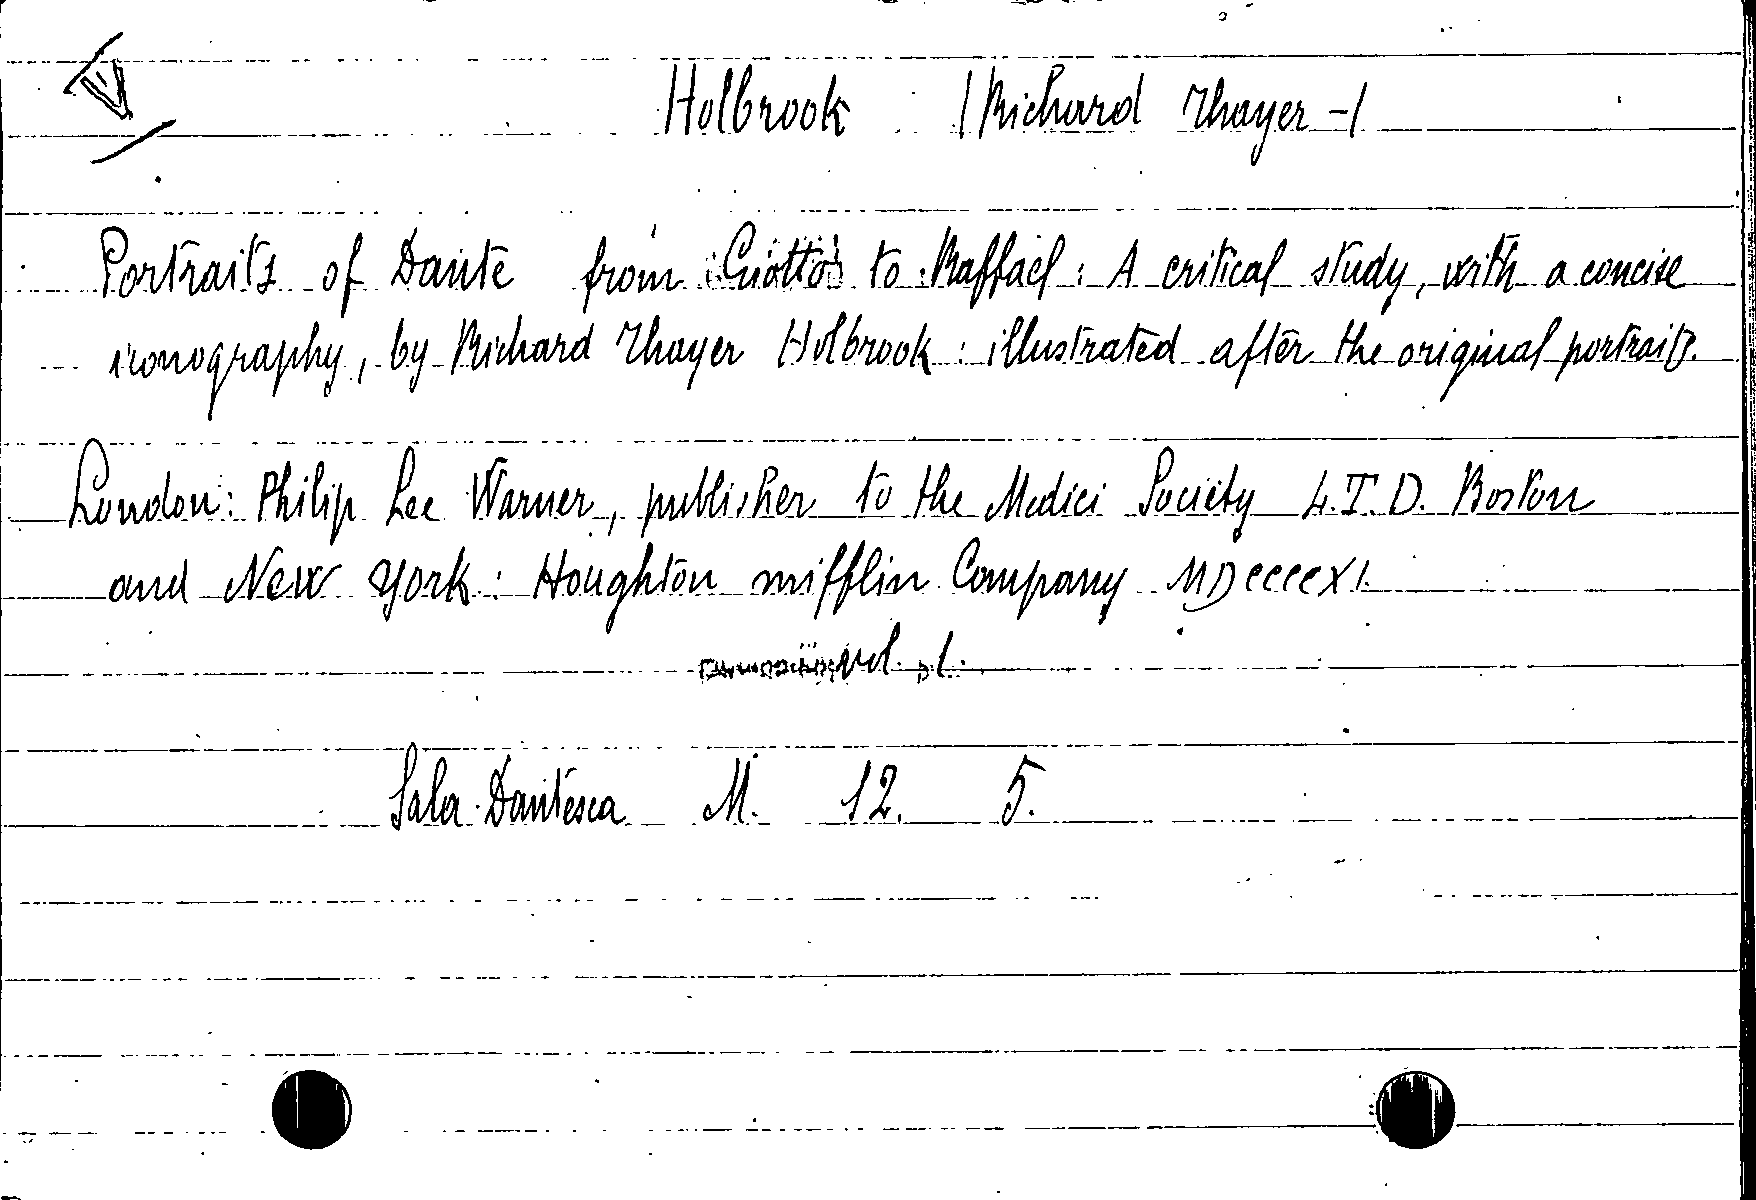 Holbrook /Richard Thayer-/
Portraits of Dante from Giotto to Raffael: A critical study, with a concise
iconography, by Richard Thayer Holbrook: illustrated after the original portraits.
London: Philip Lee Warner, publisher to the Medici Society L.T.D. Boston
and New York: Houghton mifflin Company MDccccXI.
vol. 1.
Sala Dantesca M. 12. 5.